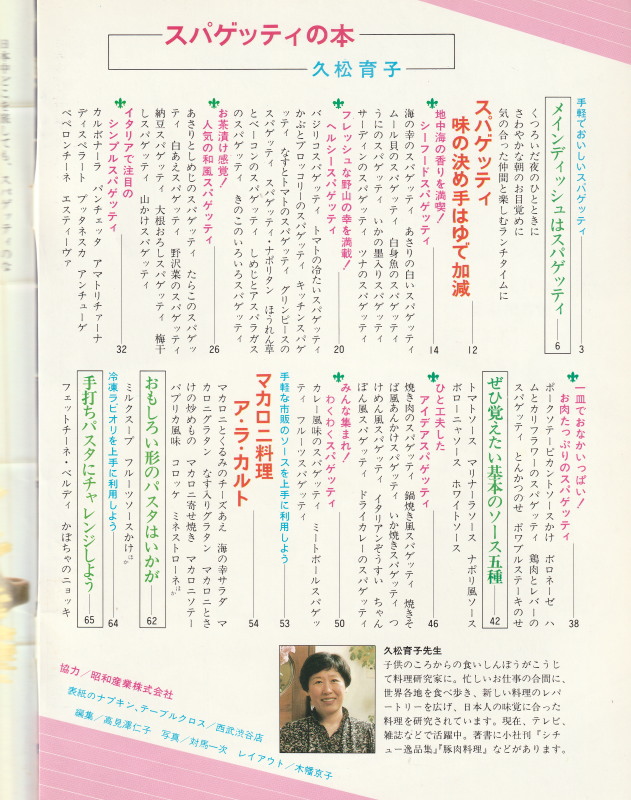 スパゲッティの本
久松育子
手軽でおいしいスパゲッティ 3
メインディッシュはスパゲッティ 6
くつろいだ夜のひとときに
さわやかな朝のお目覚めに
気の合った仲間と楽しむランチタイムに
スパゲッティ
味の決め手はゆで加減 12
地中海の香りを満喫!
シーフードスパゲッティ 14
海の幸のスパゲッティ あさりの白いスパゲッティ
ムール貝のスパゲッティ 白身魚のスパゲッティ
うにのスパゲッティ いかの墨入りスパゲッティ
サーディンのスパゲッティ ツナのスパゲッティ
フレッシュな野山の幸を満載!
ヘルシースパゲッティ 20
バジリコスパゲッティ トマトの冷たいスパゲッティ
かぶとブロッコリーのスパゲッティ キッチンスパゲ
ッティ なすとトマトのスパゲッティ グリンピースの
スパゲッティ スパゲッティ・ナポリタン ほうれん草
とベーコンのスパゲッティ しめじとアスパラガス
のスパゲッティ きのこのいろいろスパゲッティ
お茶漬け感覚!
人気の和風スパゲッティ 26
あさりとしめじのスパゲッティ たらこのスパゲッ
ティ 白あえスパゲッティ 野沢菜のスパゲッティ
納豆スパゲッティ 大根おろしスパゲッティ 梅干
しスパゲッティ 山かけスパゲッティ
イタリアで注目の
シンプルスパゲッティ 32
カルボナーラ パンチェッタ アマトリチャーナ
ディスペラート プッタネスカ アンチューゲ
ペペロンチーネ エスティーヴァ
一皿でおなかいっぱい!
お肉たっぷりのスパゲッティ 38
ポークソテーピカントソースかけ ボロネーゼ ハ
ムとカリフラワーのスパゲッティ 鶏肉とレバーの
スパゲッティ とんかつのせ ポワブルステーキのせ
ぜひ覚えたい基本のソース五種 42
トマトソース マリナーラソース ナポリ風ソース
ボローニャソース ホワイトソース
ひと工夫した
アイデアスパゲッティ 46
焼き肉のスパゲッティ 鍋焼き風スパゲッティ 焼きそ
ば風あんかけスパゲッティ いか焼きスパゲッティ つ
けめん風スパゲッティ イタリアンぞうすい ちゃん
ぽん風スパゲッティ ドライカレーのスパゲッティ
みんな集まれ!
わくわくスパゲッティ 50
カレー風味のスパゲッティ ミートボールスパゲッ
ティ フルーツスパゲッティ
手軽な市販のソースを上手に利用しよう 53
マカロニ料理
ア・ラ・カルト 54
マカロニとくるみのチーズあえ 海の幸サラダ マ
カロニグラタン なす入りグラタン マカロニとさ
けの炒めもの マカロニ寄せ焼き マカロニソテー
パプリカ風味 コロッケ ミネストローネほか
おもしろい形のパスタはいかが 62
ミルクスープ フルーツソースかけほか
冷凍ラビオリを上手に利用しよう 64
手打ちパスタにチャレンジしよう 65
フェットチーネ・ベルディ かぼちゃのニョッキ
久松育子先生
子供のころからの食いしんぼうがこうじ
て料理研究家に。忙しいお仕事の合間に、
世界各地を食べ歩き、新しい料理のレパ
ートリーを広げ、日本人の味覚に合った
料理を研究されています。現在、テレビ、
雑誌などで活躍中。著書に小社刊『シチ
ュー逸品集』『豚肉料理』などがあります。
協力/昭和産業株式会社
表紙のナプキン、テーブルクロス/西武渋谷店
編集/高見澤仁子 写真/対馬一次 レイアウト/木幡京子